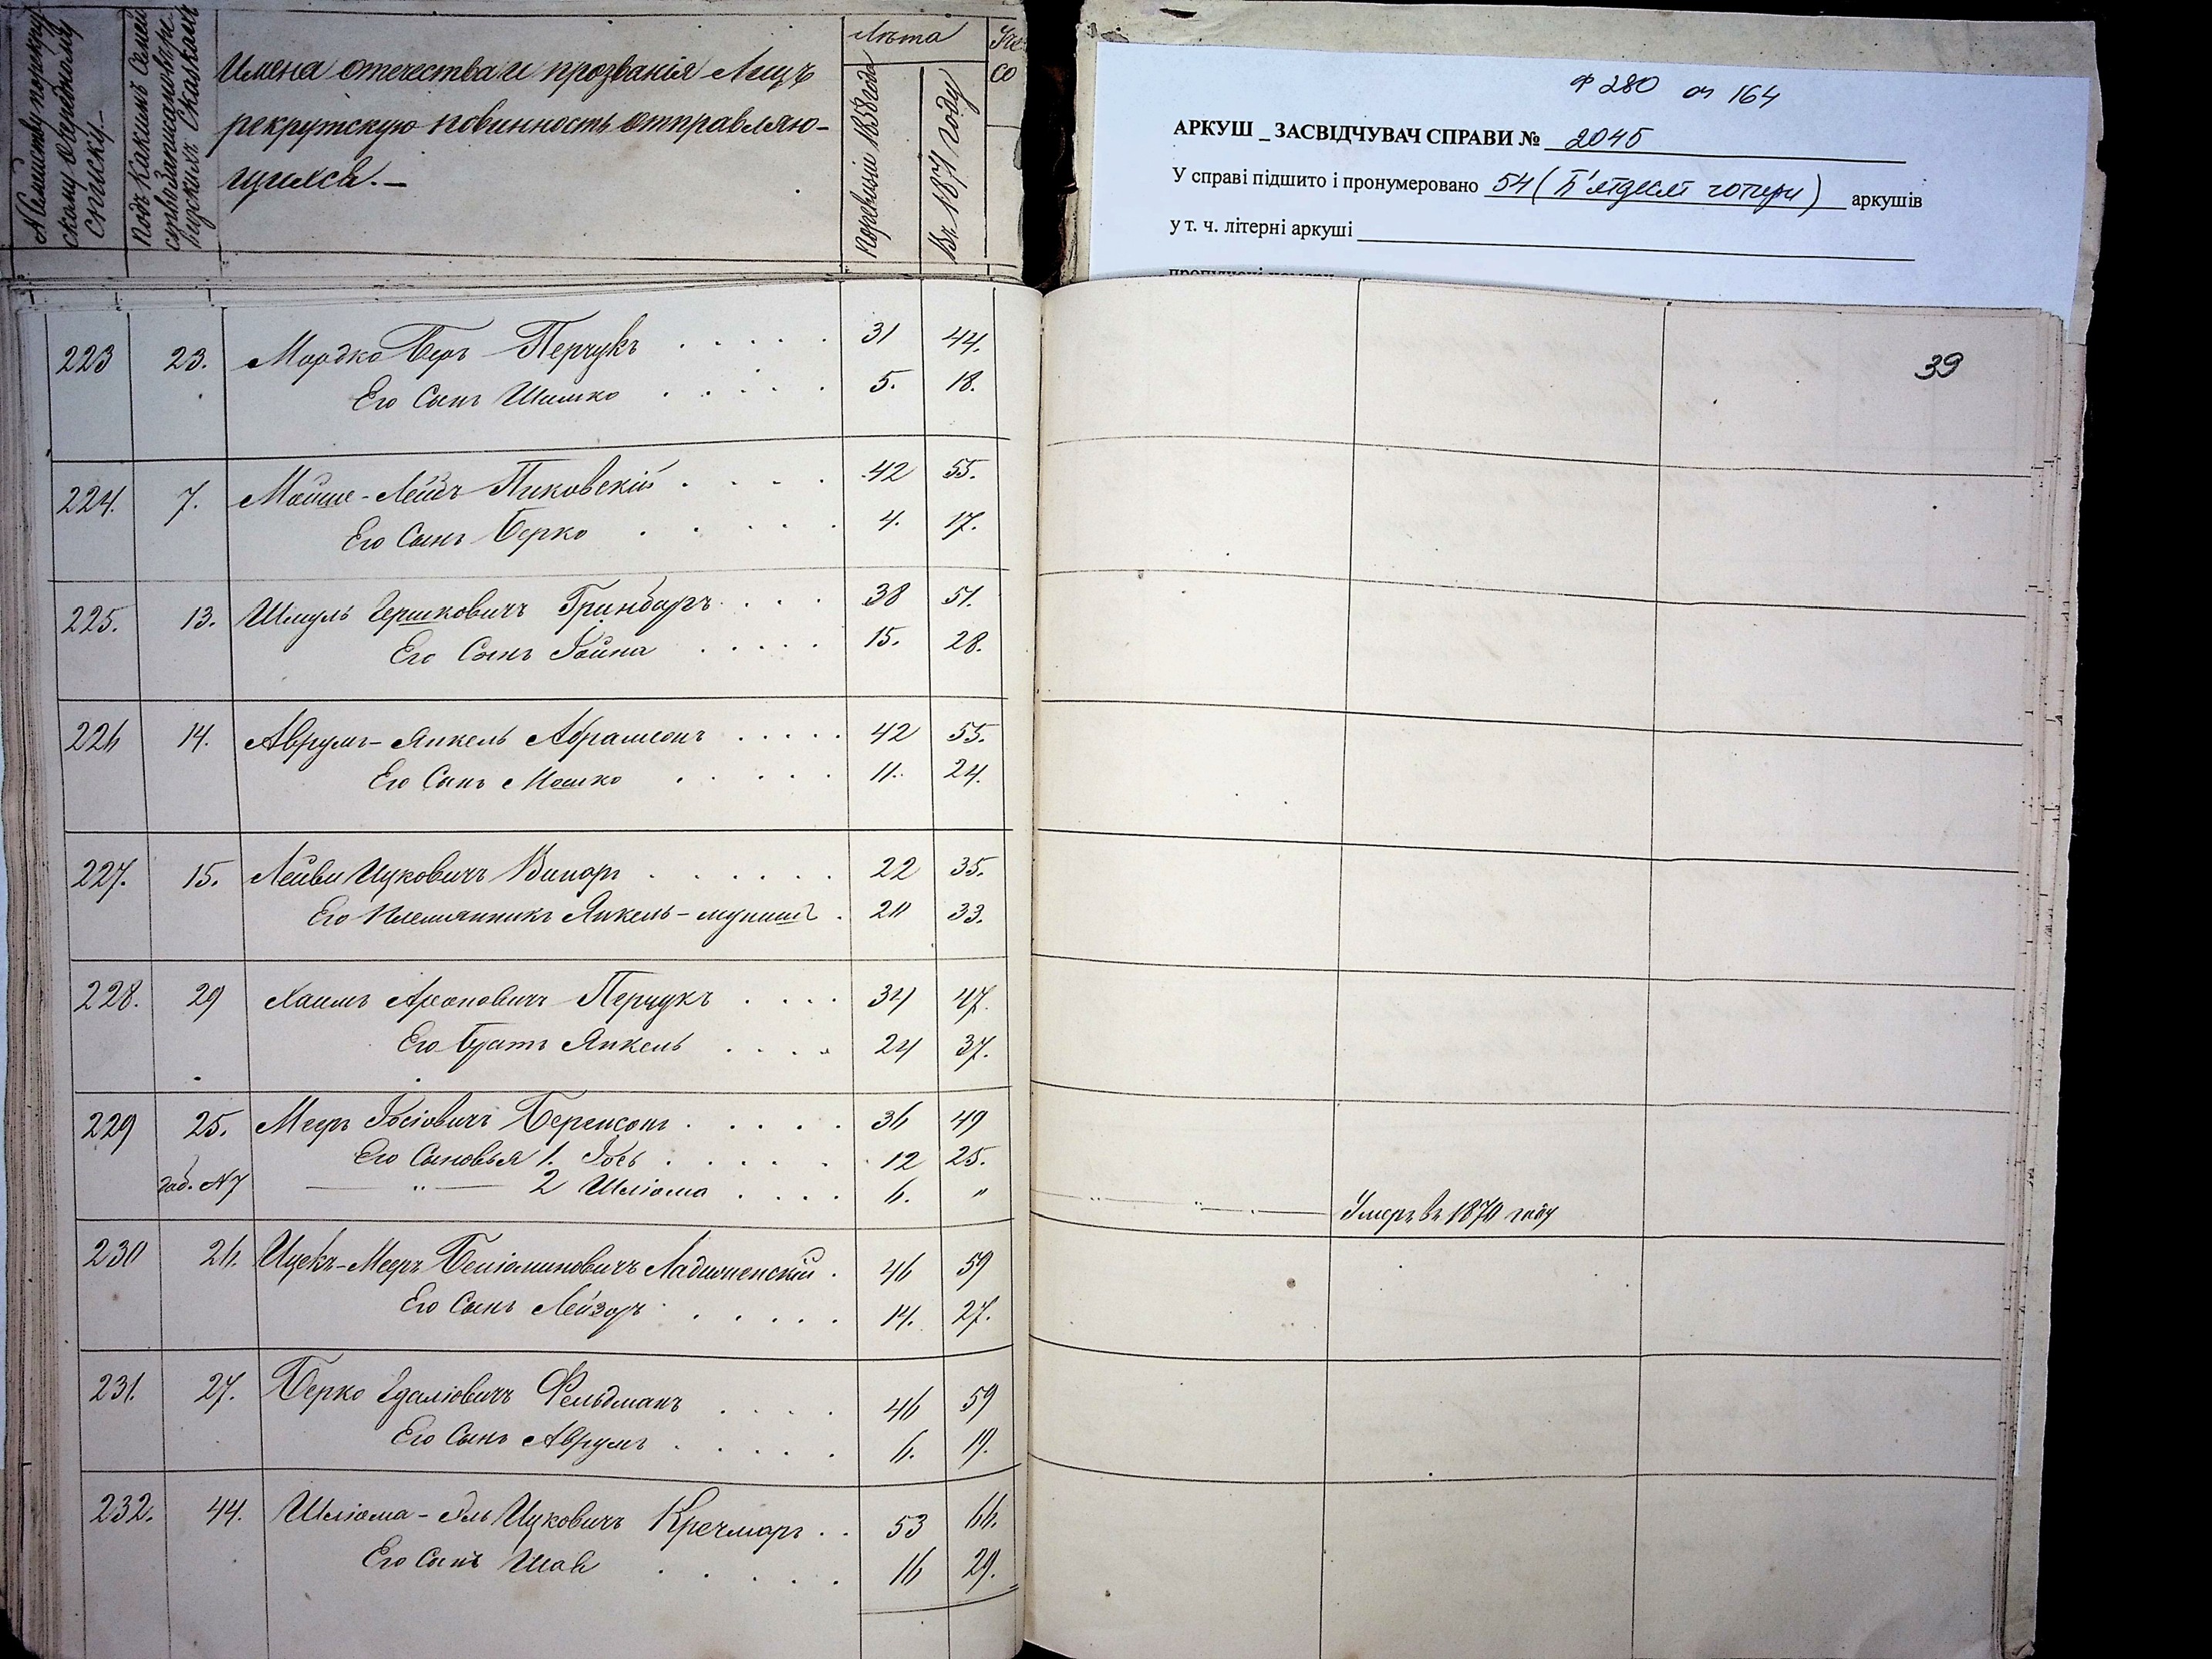 № Семейству по рекрутскому очередному списку.—
Подъ какимъ семействомъ записано въ ревизскихъ сказкахъ
Имена отечества и прозванія Лицъ
рекрутскую повинность отправляю-
щихся.—
Лѣта
По ревизіи 1858 года
Въ 1871 году
Ф 280 оп 164
АРКУШ _ ЗАСВІДЧУВАЧ СПРАВИ № 2045
У справі підшито і пронумеровано 54 (П'ятдесят чотири) аркушів
у т. ч. літерні аркуші
пропущені номери
39
223 23. Мордко Беръ Перчукъ . . . . . 31 44.
Его Сынъ Шимко . . . . . 5. 18.
224. 7. Мойше-Лейзъ Пиковскій . . . . 42 55.
Его Сынъ Берко . . . . . 4. 17.
225. 13. Шмуль Гершковичъ Гринбаръ . . . 38 51.
Его Сынъ Іойна . . . . . 15. 28.
226 14. Аврумъ-Янкель Абрамсонъ . . . . . 42 55.
Его Сынъ Мошко . . . . . 11. 24.
227. 15. Лейви Ицковичъ Винаръ . . . . . . 22 35.
Его Племянникъ Янкель- . 20 33.
228. 29 Хаимъ Ароновичъ Перчукъ . . . . 34 47.
Его братъ Янкель . . . . 24 37.
229 25. Мееръ Іосіовичъ Беренсонъ . . . . . 36 49
Его Сыновья 1. Іось . . . . . 12 25.
доб. №7 — " — 2 Шліома . . . . 6. " — " — Умеръ въ 1870 году
230 26. Ицекъ-Мееръ Беніоминовичъ Ладыженскій . 46 59
Его Сынъ Лейзоръ . . . . . 14. 27.
231. 27. Берко Гдаліовичъ Фельдманъ . . . . 46 59
Его Сынъ Аврумъ . . . . . 6. 19.
232. 44. Шліома-Эль Ицковичъ Кречмаръ . . 53 66.
Его Сынъ Шая . . . . . 16 29.